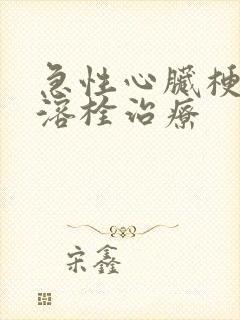 急性心臟梗
溶栓治療
宋鑫